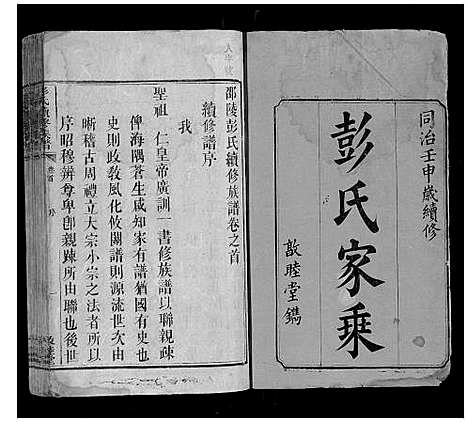 同治壬申歲續修
彭氏家乘
敦睦堂鐫
邵陵彭氏續修族譜卷之首
續修譜序
我
聖祖 仁皇帝廣訓一書修族譜以聯親疎
俾海隅蒼生咸知家有譜猶國有史也
史則政敎風化攸關譜則源流世次由
晰稽古周禮立大宗小宗之法者所以
序昭穆辨尊卑卽親疎所由聯也後世